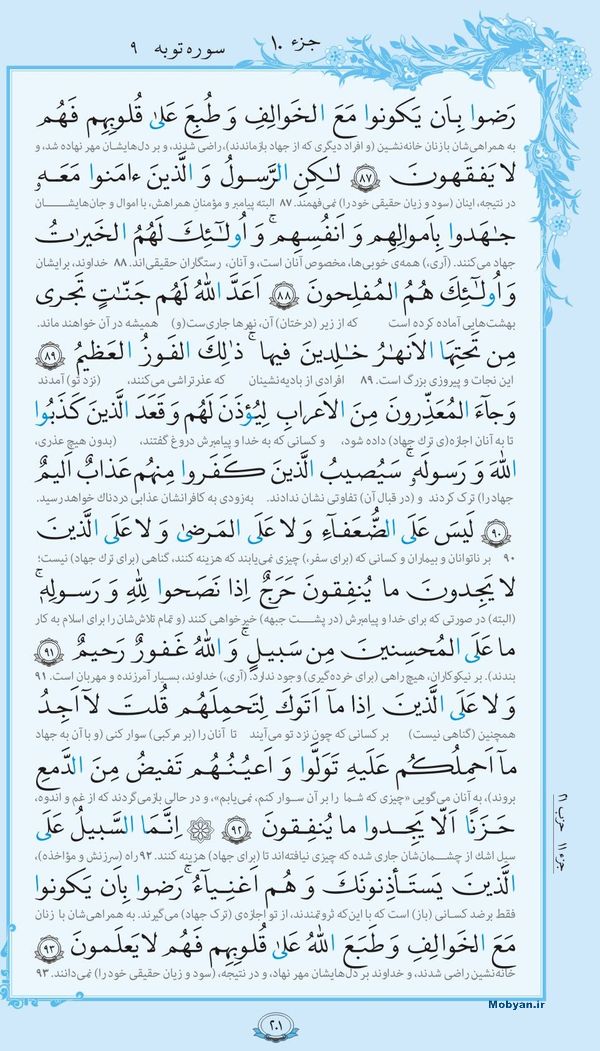 جزء ۱۰
سوره توبه ۹
رَضوا بِاَن يَكونوا مَعَ الخَوالِفِ وَ طُبِعَ عَلىٰ قُلوبِهِم فَهُم
به همراهی‌شان بازنان خانه‌نشین (و افراد دیگری که از جهاد بازماندند)، راضی شدند، و بر دل‌هایشان مهر نهاده شد، و
لا يَفقَهونَ ﴿۸۷﴾ لٰكِنِ الرَّسولُ وَ الَّذينَ ءامَنوا مَعَهو
در نتیجه، اینان (سود و زیان حقیقی خود را) نمی‌فهمند. ۸۷ البته پیامبر و مؤمنان همراهش، با اموال و جان‌هایشان
جٰهَدوا بِاَموالِهِم وَ اَنفُسِهِم ۚ وَ اُولٰئِكَ لَهُمُ الخَيراتُ
جهاد می‌کنند. (آری،) همه‌ی خوبی‌ها، مخصوص آنان است، و آنان، رستگاران حقیقی‌اند. ۸۸ خداوند، برایشان
وَ اُولٰئِكَ هُمُ المُفلِحونَ ﴿۸۸﴾ اَعَدَّ اللهُ لَهُم جَنّٰتٍ تَجرى
بهشت‌هایی آماده کرده است که از زیر (درختان) آن، نهرها جاری‌ست (و) همیشه در آن خواهند ماند.
مِن تَحتِهَا الاَنهٰرُ خٰلِدينَ فيها ۚ ذٰلِكَ الفَوزُ العَظيمُ ﴿۸۹﴾
این نجات و پیروزی بزرگ است. ۸۹ افرادی از بادیه‌نشینان که عذرتراشی می‌کنند، (نزد تو) آمدند
وَ جاءَ المُعَذِّرونَ مِنَ الاَعرابِ لِيُؤذَنَ لَهُم وَ قَعَدَ الَّذينَ كَذَبُوا
تا به آنان اجازه‌(ی ترک جهاد) داده شود، و کسانی که به خدا و پیامبرش دروغ گفتند، (بدون هیچ عذری،
اللهَ وَ رَسولَهو ۚ سَيُصيبُ الَّذينَ كَفَروا مِنهُم عَذابٌ اَليمٌ
جهاد را) ترک کردند و (در قبال آن) تفاوتی نشان ندادند. به‌زودی به کافرانشان عذابی دردناک خواهد رسید.
﴿۹۰﴾ لَيسَ عَلَى الضُّعَفاءِ وَ لا عَلَى المَرضىٰ وَ لا عَلَى الَّذينَ
۹۰ بر ناتوانان و بیماران و کسانی که (برای سفر،) چیزی نمی‌یابند که هزینه کنند، گناهی (برای ترک جهاد) نیست؛
لا يَجِدونَ ما يُنفِقونَ حَرَجٌ اِذا نَصَحوا لِلّٰهِ وَ رَسولِهٖ ۚ
(البته) در صورتی که برای خدا و پیامبرش (در پشت جبهه) خیرخواهی کنند (و تمام تلاش‌شان را برای اسلام به کار
ما عَلَى المُحسِنينَ مِن سَبيلٍ ۚ وَ اللهُ غَفورٌ رَحيمٌ ﴿۹۱﴾
بندند). بر نیکوکاران، هیچ راهی (برای خرده‌گیری) وجود ندارد. (آری،) خداوند، بسیار آمرزنده و مهربان است. ۹۱
وَ لا عَلَى الَّذينَ اِذا ما اَتَوكَ لِتَحمِلَهُم قُلتَ لا اَجِدُ
همچنین (گناهی نیست) بر کسانی که چون نزد تو می‌آیند تا آنان را (بر مرکبی) سوار کنی (و با آن به جهاد
ما اَحمِلُكُم عَلَيهِ تَوَلَّوا وَ اَعيُنُهُم تَفيضُ مِنَ الدَّمعِ
بروند)، به آنان می‌گویی «چیزی که شما را بر آن سوار کنم، نمی‌یابم»، و در حالی بازمی‌گردند که از غم و اندوه،
حَزَنًا اَلّا يَجِدوا ما يُنفِقونَ ﴿۹۲﴾ اِنَّمَا السَّبيلُ عَلَى
سیل اشک از چشمان‌شان جاری شده که چیزی نیافته‌اند تا (برای جهاد) هزینه کنند. ۹۲ راه (سرزنش و مؤاخذه)،
الَّذينَ يَستَأذِنونَكَ وَ هُم اَغنِياءُ ۚ رَضوا بِاَن يَكونوا
فقط بر ضد کسانی (باز) است که با این‌که ثروتمندند، از تو اجازه‌ی (ترک جهاد) می‌گیرند. به همراهی‌شان با زنان
مَعَ الخَوالِفِ وَ طَبَعَ اللهُ عَلىٰ قُلوبِهِم فَهُم لا يَعلَمونَ ﴿۹۳﴾
خانه‌نشین راضی شدند، و خداوند بر دل‌هایشان مهر نهاد، و در نتیجه، (سود و زیان حقیقی خود را) نمی‌دانند. ۹۳
جزء ۱۱ حزب ۲۱
۲۰۱
Mobyan.ir